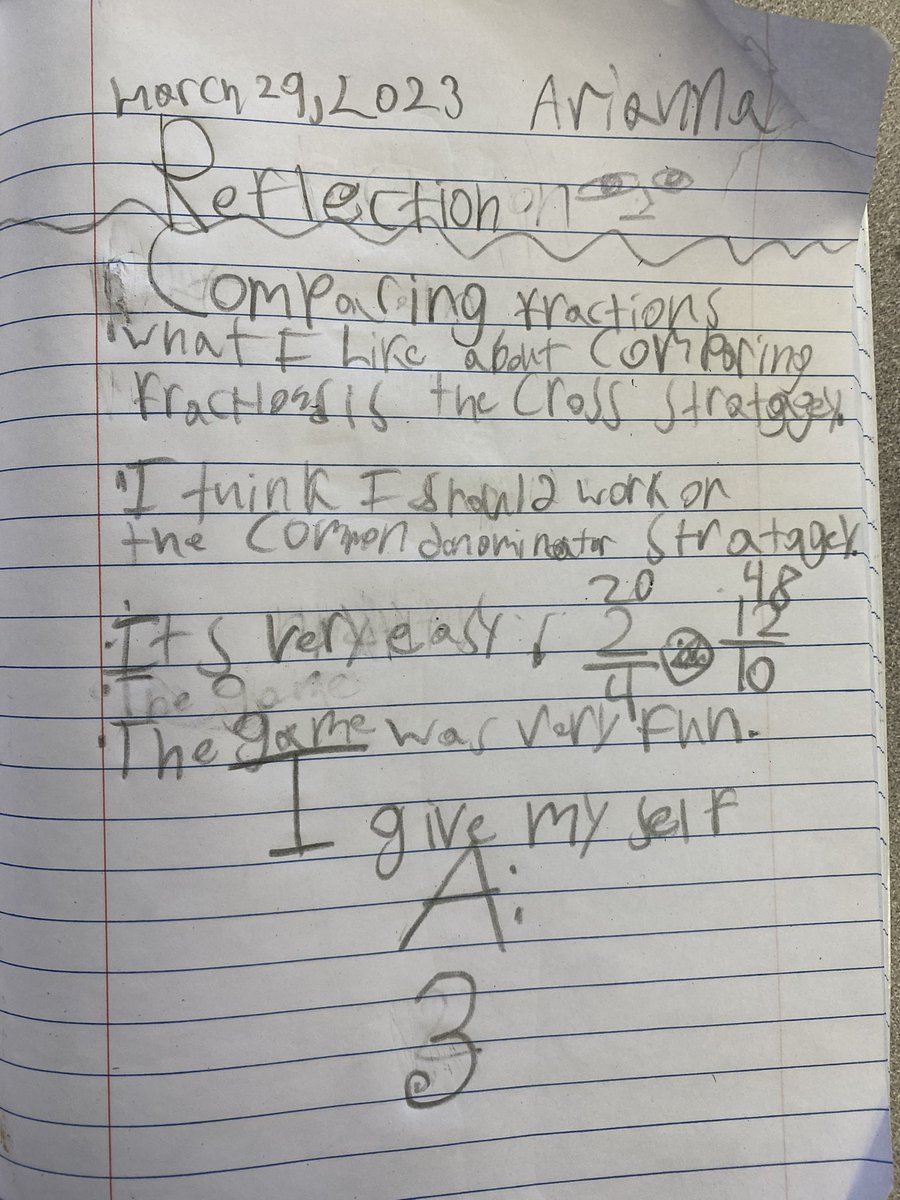 March 29, 2023 Arianna
Reflection on
Comparing fractions
What I like about Comparing
fractions is the Cross stratagey.
I think I should work on
the Common denominator stratagey.
20 48
It's very easy! 2 12
4 10
The game
The game was very fun.
I give my self
A:
3